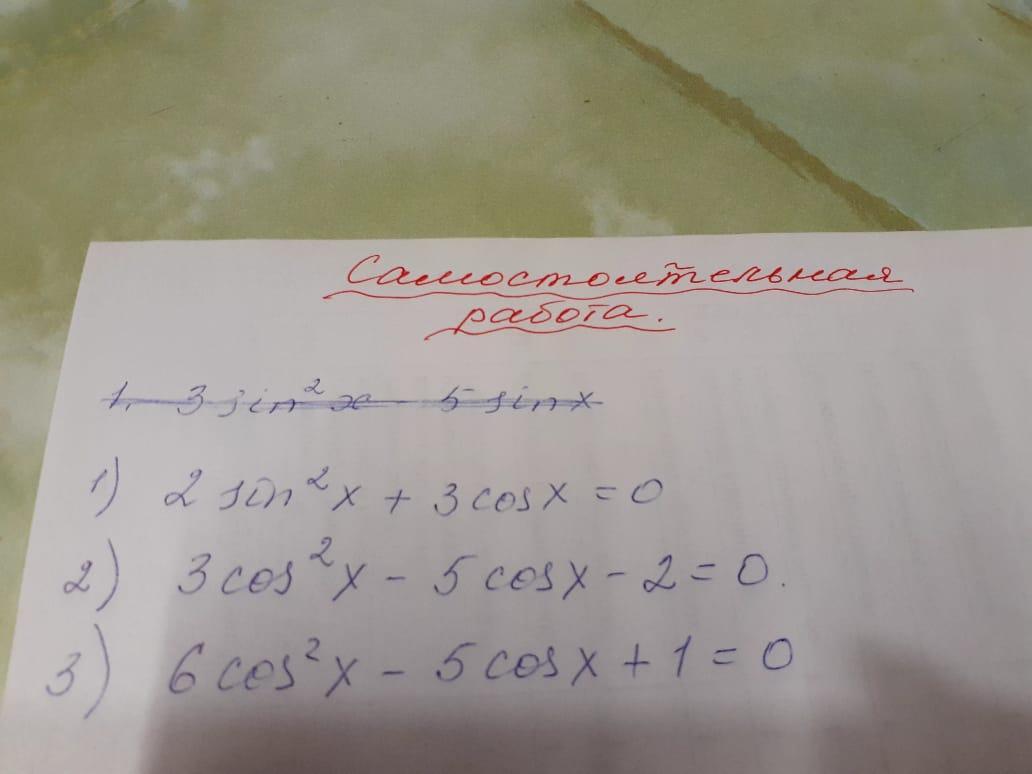 Самостоятельная
работа.
1. 3 sin²x 5 sinx
1) 2 sin²x + 3 cosx = 0
2) 3 cos²x - 5 cosx - 2 = 0.
3) 6 cos²x - 5 cosx + 1 = 0